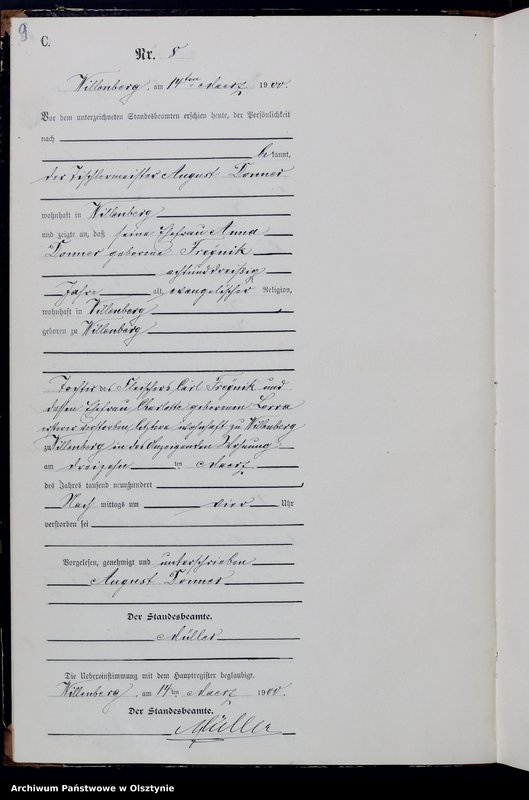 9
C.
Nr. 8
Willenberg, am 14ten Maerz 1900.
Vor dem unterzeichneten Standesbeamten erschien heute, der Persönlichkeit
nach
bekannt,
der Tischlermeister August Donner
wohnhaft in Willenberg
und zeigte an, daß seine Ehefrau Anna
Donner geborene Treynik
achtunddreißig
Jahre alt, evangelischer Religion,
wohnhaft in Willenberg
geboren zu Willenberg
Tochter des Fleischers Carl Treynik und
dessen Ehefrau Charlotte geborenen Lorra
ersterer verstorben, letztere wohnhaft zu Willenberg
zu Willenberg in des Anzeigenden Wohnung
am dreizehn ten Maerz
des Jahres tausend neunhundert
Nach mittags um vier Uhr
verstorben sei
Vorgelesen, genehmigt und unterschrieben
August Donner
Der Standesbeamte.
Müller
Die Uebereinstimmung mit dem Hauptregister beglaubigt.
Willenberg, am 14ten Maerz 1900.
Der Standesbeamte.
Müller
Archiwum Państwowe w Olsztynie